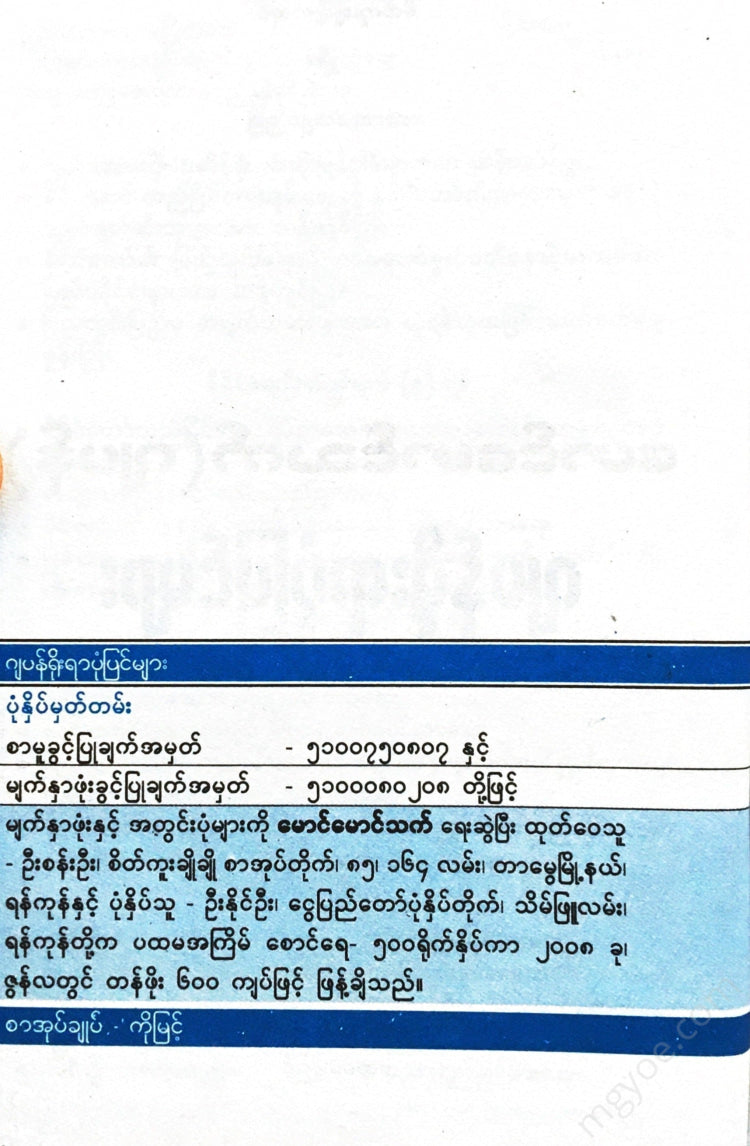 ဂျပန်ရိုးရာပုံပြင်များ
ပုံနှိပ်မှတ်တမ်း
စာမူခွင့်ပြုချက်အမှတ် - ၅၁၀၀၇၅၀၈၀၇ နှင့်
မျက်နှာဖုံးခွင့်ပြုချက်အမှတ် - ၅၁၀၀၀၈၀၂၀၈ တို့ဖြင့်
မျက်နှာဖုံးနှင့် အတွင်းပုံများကို မောင်မောင်သက် ရေးဆွဲပြီး ထုတ်ဝေသူ
- ဦးစန်းဦး၊ စိတ်ကူးချိုချို စာအုပ်တိုက်၊ ၈၅၊ ၁၆၄ လမ်း၊ တာမွေမြို့နယ်၊
ရန်ကုန်နှင့် ပုံနှိပ်သူ - ဦးနိုင်ဦး၊ ငွေပြည်တော်ပုံနှိပ်တိုက်၊ သိမ်ဖြူလမ်း၊
ရန်ကုန်တို့က ပထမအကြိမ် စောင်ရေ- ၅၀၀ရိုက်နှိပ်ကာ ၂၀၀၈ ခု၊
ဇွန်လတွင် တန်ဖိုး ၆၀၀ ကျပ်ဖြင့် ဖြန့်ချိသည်။
စာအုပ်ချုပ် - ကိုမြင့်
mgyoe.com